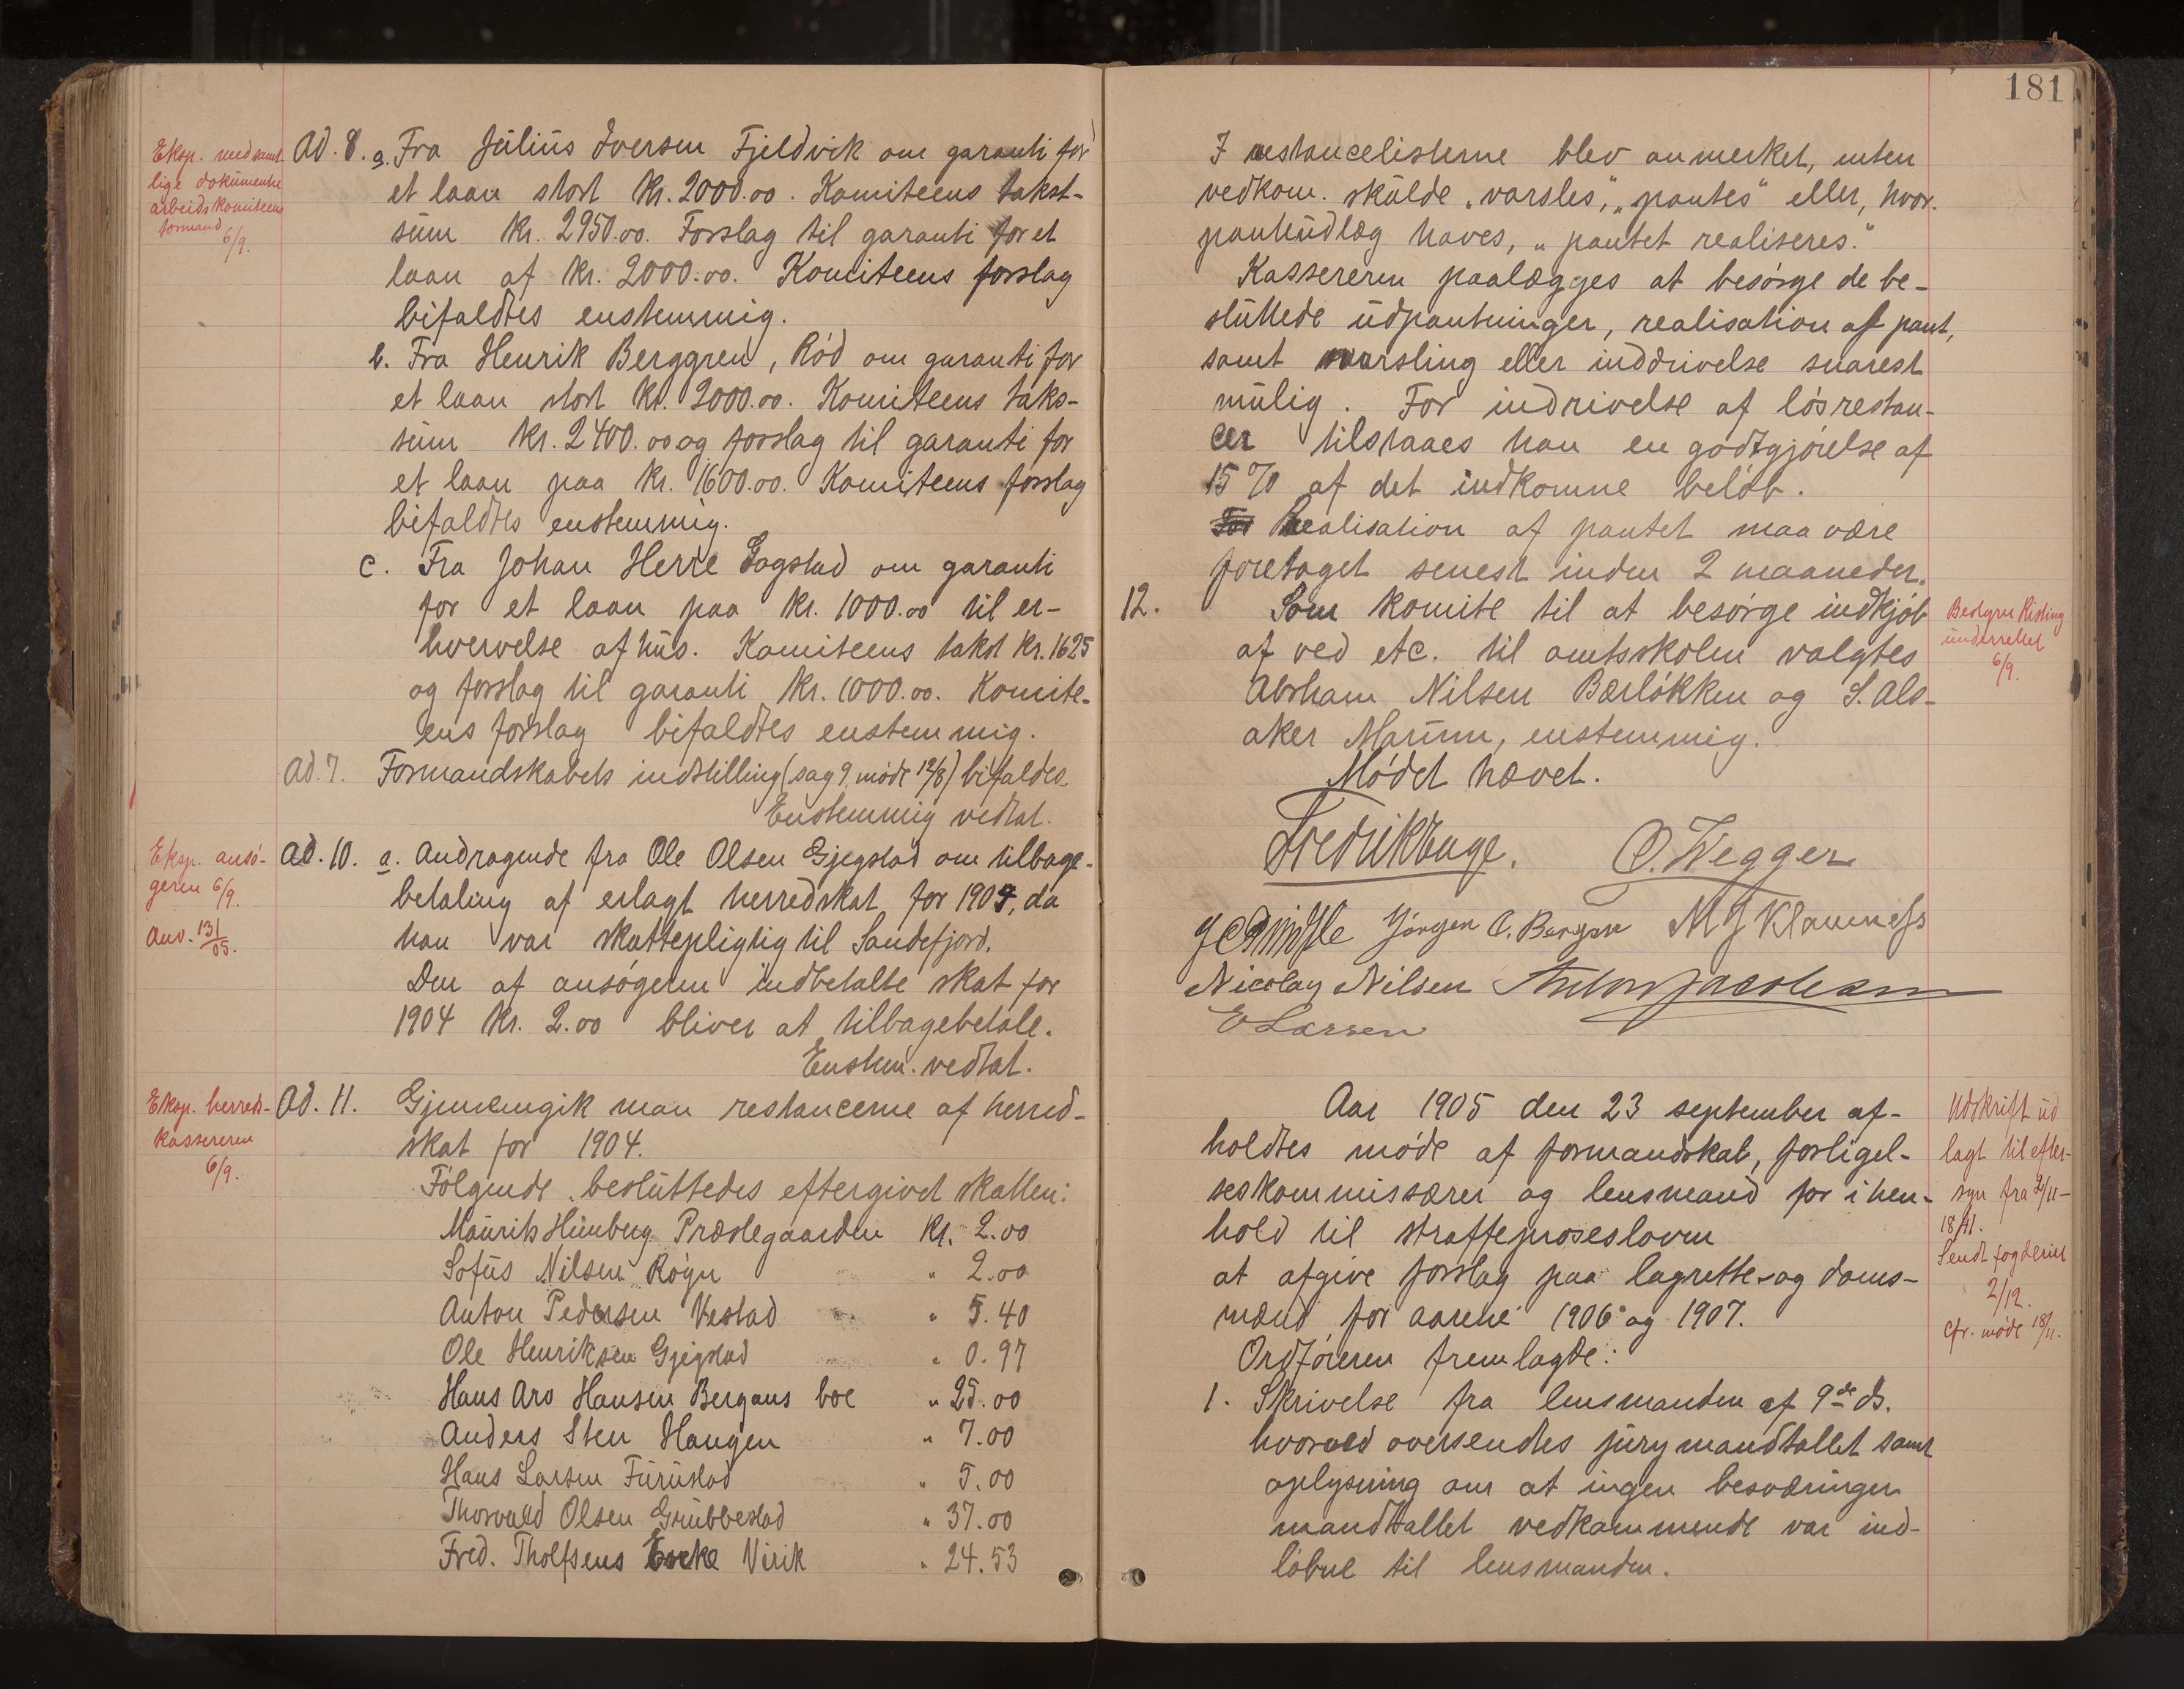 Eksp. med samt-
lige dokumenter
arbeidskomiteens
formand
6/9.
Ad. 8. a. Fra Julius Iversen Fjeldvik om garanti for
et laan stort kr. 2000.00. Komiteens takst-
sum kr. 2950.00. Forslag til garanti for et
laan af kr. 2000.00. Komiteens forslag
bifaldtes enstemmig.
b. Fra Henrik Berggren, Rød om garanti for
et laan stort kr. 2000.00. Komiteens taks-
sum kr. 2400.00 og forslag til garanti for
et laan paa kr. 1600.00. Komiteens forslag
bifaldtes enstemmig.
c. Fra Johan Herre Gogstad om garanti
for et laan paa kr. 1000.00 til er-
hvervelse af hus. Komiteens takst kr. 1625
og forslag til garanti kr. 1000.00. Komite-
ens forslag bifaldtes enstemmig.
Ad. 7. Formandskabets indstilling (sag 9, møde 12/8) bifaldes.
Enstemmig vedtat.
Eksp. ansø-
geren 6/9.
Anv. 131/05.
Ad. 10. a. Andragende fra Ole Olsen Gjegstad om tilbage-
betaling af erlagt herredskat for 1904, da
han var skattepligtig til Sandefjord.
Den af ansøgeren indbetalte skat for
1904 kr. 2.00 bliver at tilbagebetale.
Enstem. vedtat.
Eksp. herreds-
kassereren
6/9.
Ad. 11. Gjennemgik man restancerne af herred-
skat for 1904.
Følgende besluttedes eftergivet skatten:
Maurits Himberg Præstegaarden kr. 2.00
Sofus Nilsen Røgn " 2.00
Anton Pedersen Vestad " 5.40
Ole Henriksen Gjegstad " 0.97
Hans Aro Hansen Bergans boe " 25.00
Anders Sten Haugen " 7.00
Hans Larsen Furustad " 5.00
Thorvald Olsen Grubbestad " 37.00
Fred. Tholfsens Enke Virik " 24.53
181
I restancelisterne blev anmerket, enten
vedkom. skulde "varsles", "pantes" eller, hvor
pantudlæg haves, "pantet realiseres."
Kassereren paalægges at besørge de be-
sluttede udpantninger, realisation af pant,
samt varsling eller inddrivelse snarest
mulig. For indrivelse af løsrestan-
cer tilstaaes han en godtgjørelse af
15 % af det indkomne beløb.
For Realisation af pantet maa være
foretaget senest inden 2 maaneder.
12. Som komite til at besørge indkjøb
af ved etc. til amtsskolen valgtes
Abraham Nilsen Bærløkken og S. Als-
aker Marum, enstemmig.
Bestyrer Risting
underrettet
6/9.
Mødet hævet.
Fredrik Bugge. O. Wegger
Jørgen C. Bergan M J Klavness
Nicolay Nilsen Anton Jacobsen
E Larsen
Aar 1905 den 23 september af-
holdtes møde af formandskab, forligel-
seskommissærer og lensmand for i hen-
hold til straffeproseslovens
at afgive forslag paa lagrette- og doms-
mænd for aarene 1906 og 1907.
Ordføreren fremlagde:
1. Skrivelse fra lensmanden af 9de ds.
hvorved oversendtes jurymandtallet samt
oplysning om at ingen besværinger
mandtallet vedkommende var ind-
løbne til lensmanden.
Udskrift ud
lagt til efter-
syn fra 2/11-
18/11.
Sendt fogderiet
2/12.
cfr. møde 18/11.